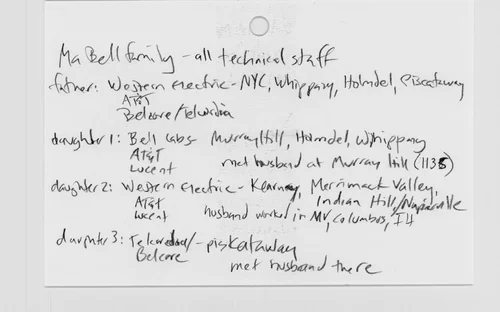 Ma Bell family - all technical staff
father: Western Electric - NYC, Whippany, Holmdel, Piscataway
AT&T
Bellcore/Telcordia
daughter 1: Bell Labs Murray Hill, Holmdel, Whippany
AT&T met husband at Murray Hill (1135)
Lucent
daughter 2: Western Electric - Kearney, Merrimack Valley,
AT&T Indian Hill/Naperville
Lucent husband worked in MV, Columbus, IH
daughter 3: Telcordia/ - piskataway
Belcore
met husband there